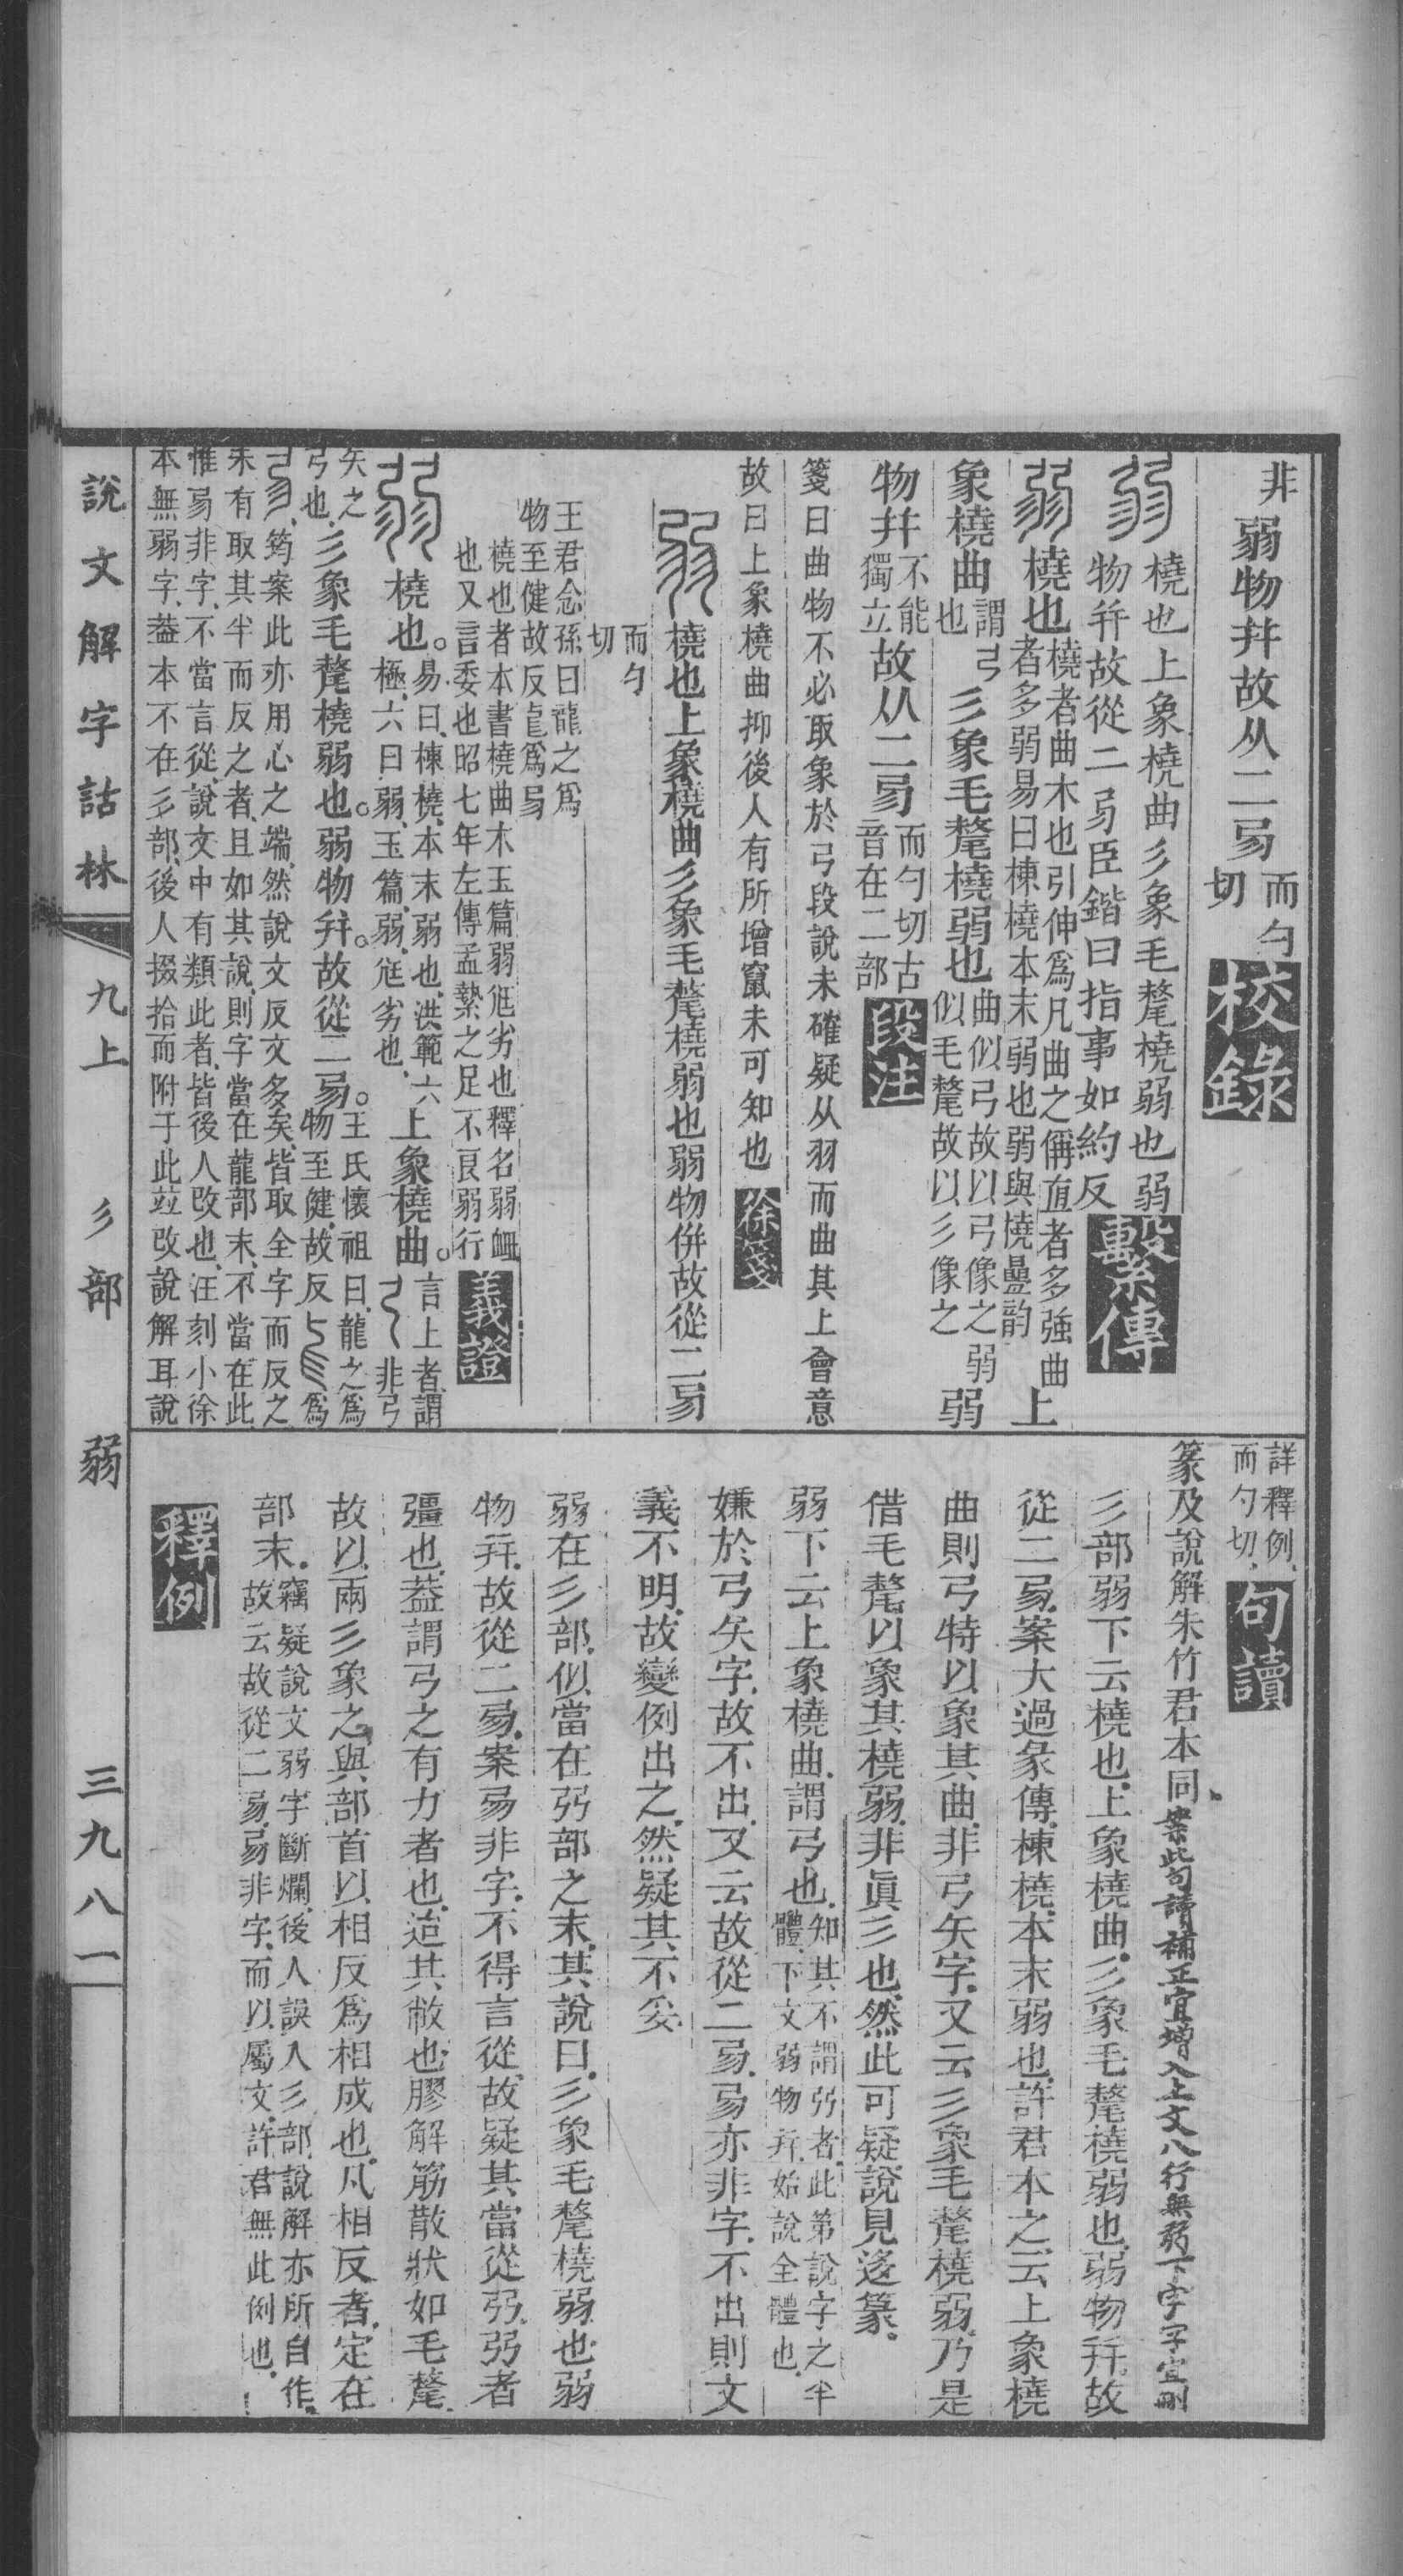 非
弱物幷故从二㢱
而勺
切
校錄
橈也上象橈曲彡象毛氂橈弱也弱
物幷故從二㢱臣鍇曰指事如約反
繫傳
橈也
橈者曲木也引伸爲凡曲之偁直者多強曲
者多弱易曰棟橈本末弱也弱與橈曡韵
上
象橈曲
謂弓
也
彡象毛氂橈弱也
曲似弓故以弓像之弱
似毛氂故以彡像之
弱
物幷
不能
獨立
故从二㢱
而勺切古
音在二部
段注
箋曰曲物不必取象於弓段說未確疑从羽而曲其上會意
故曰上象橈曲抑後人有所增竄未可知也
徐箋
橈也上象橈曲彡象毛氂橈弱也弱物併故從二㢱
而勺
切
王君念孫曰龍之爲
物至健故反龍爲㢱
橈也者本書橈曲木玉篇弱尩劣也釋名弱衄
也又言委也昭七年左傳孟縶之足不良弱行
義證
橈也。
易曰、棟橈、本末弱也、洪範六
極、六曰弱、玉篇、弱、尩劣也、
上象橈曲。
言上者、謂
非弓
矢之
弓也、
彡象毛氂橈弱也。弱物幷。故從二㢱。
王氏懷祖曰、龍之爲
物至健、故反
爲
筠案此亦用心之端、然說文反文多矣、皆取全字而反之、
未有取其半而反之者、且如其說、則字當在龍部末、不當在此、
惟㢱非字、不當言從、說文中有類此者、皆後人改也、汪刻小徐
本無弱字、葢本不在彡部、後人掇拾而附于此竝改說解耳說
詳釋例、
而勺切、
句讀
篆及說解朱竹君本同、
案此句讀補正宜增入上文八行無弱下字字宜刪
彡部弱下云橈也、上象橈曲、彡象毛氂橈弱也、弱物幷、故
從二㢱、案大過彖傳、棟橈、本末弱也、許君本之、云上象橈
曲、則弓特以象其曲、非弓矢字、又云彡象毛氂橈弱、乃是
借毛氂以象其橈弱、非眞彡也、然此可疑、說見㣎篆、
弱下云上象橈曲、謂弓也、
知其不謂弜者、此第說字之半
體、下文弱物幷、始說全體也、
嫌於弓矢字、故不出、又云故從二㢱、㢱亦非字、不出則文
義不明、故變例出之、然疑其不妥、
弱在彡部、似當在弜部之末、其說曰、彡象毛氂橈弱也、弱
物幷、故從二㢱、案㢱非字、不得言從、故疑其當從弜、弜者
彊也、葢謂弓之有力者也、迨其敝也、膠解筋散、狀如毛氂、
故以兩彡象之、與部首以相反爲相成也、凡相反者、定在
部末、
竊疑說文弱字斷爛、後人誤入彡部、說解亦所自作、
故云故從二㢱、㢱非字、而以屬文、許君無此例也、
釋例
說文解字詁林
九上
彡部
弱
三九八一